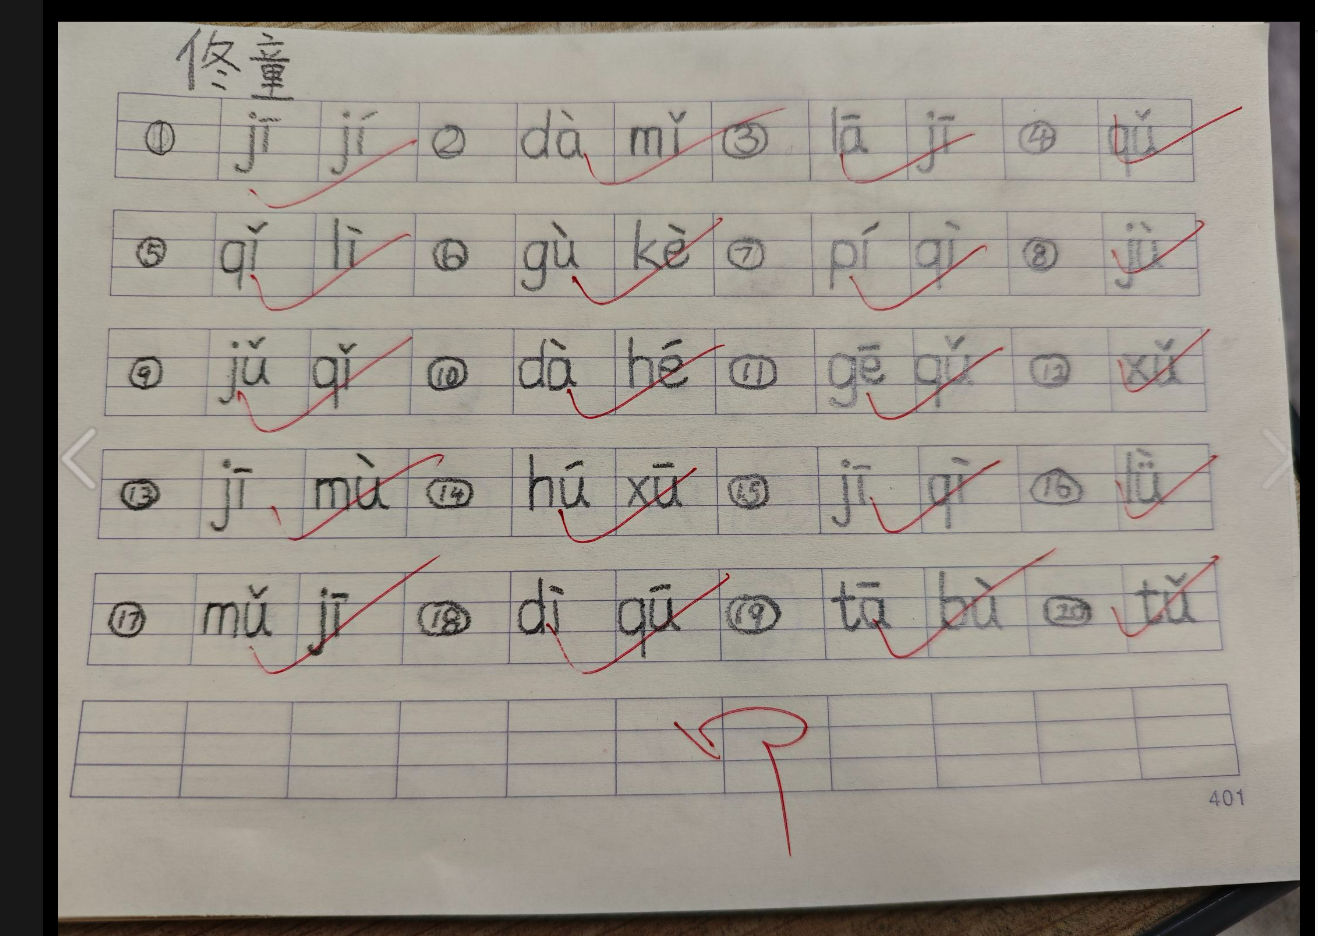 佟童
① jī jí ② dà mǐ ③ lā jī ④ qǔ
⑤ qǐ lì ⑥ gù kè ⑦ pí qì ⑧ jù
⑨ jǔ qǐ ⑩ dà hé ⑪ gē qǔ ⑫ xǔ
⑬ jī mù ⑭ hú xū ⑮ jī qì ⑯ lǜ
⑰ mǔ jī ⑱ dì qū ⑲ tā bù ⑳ tǔ
401